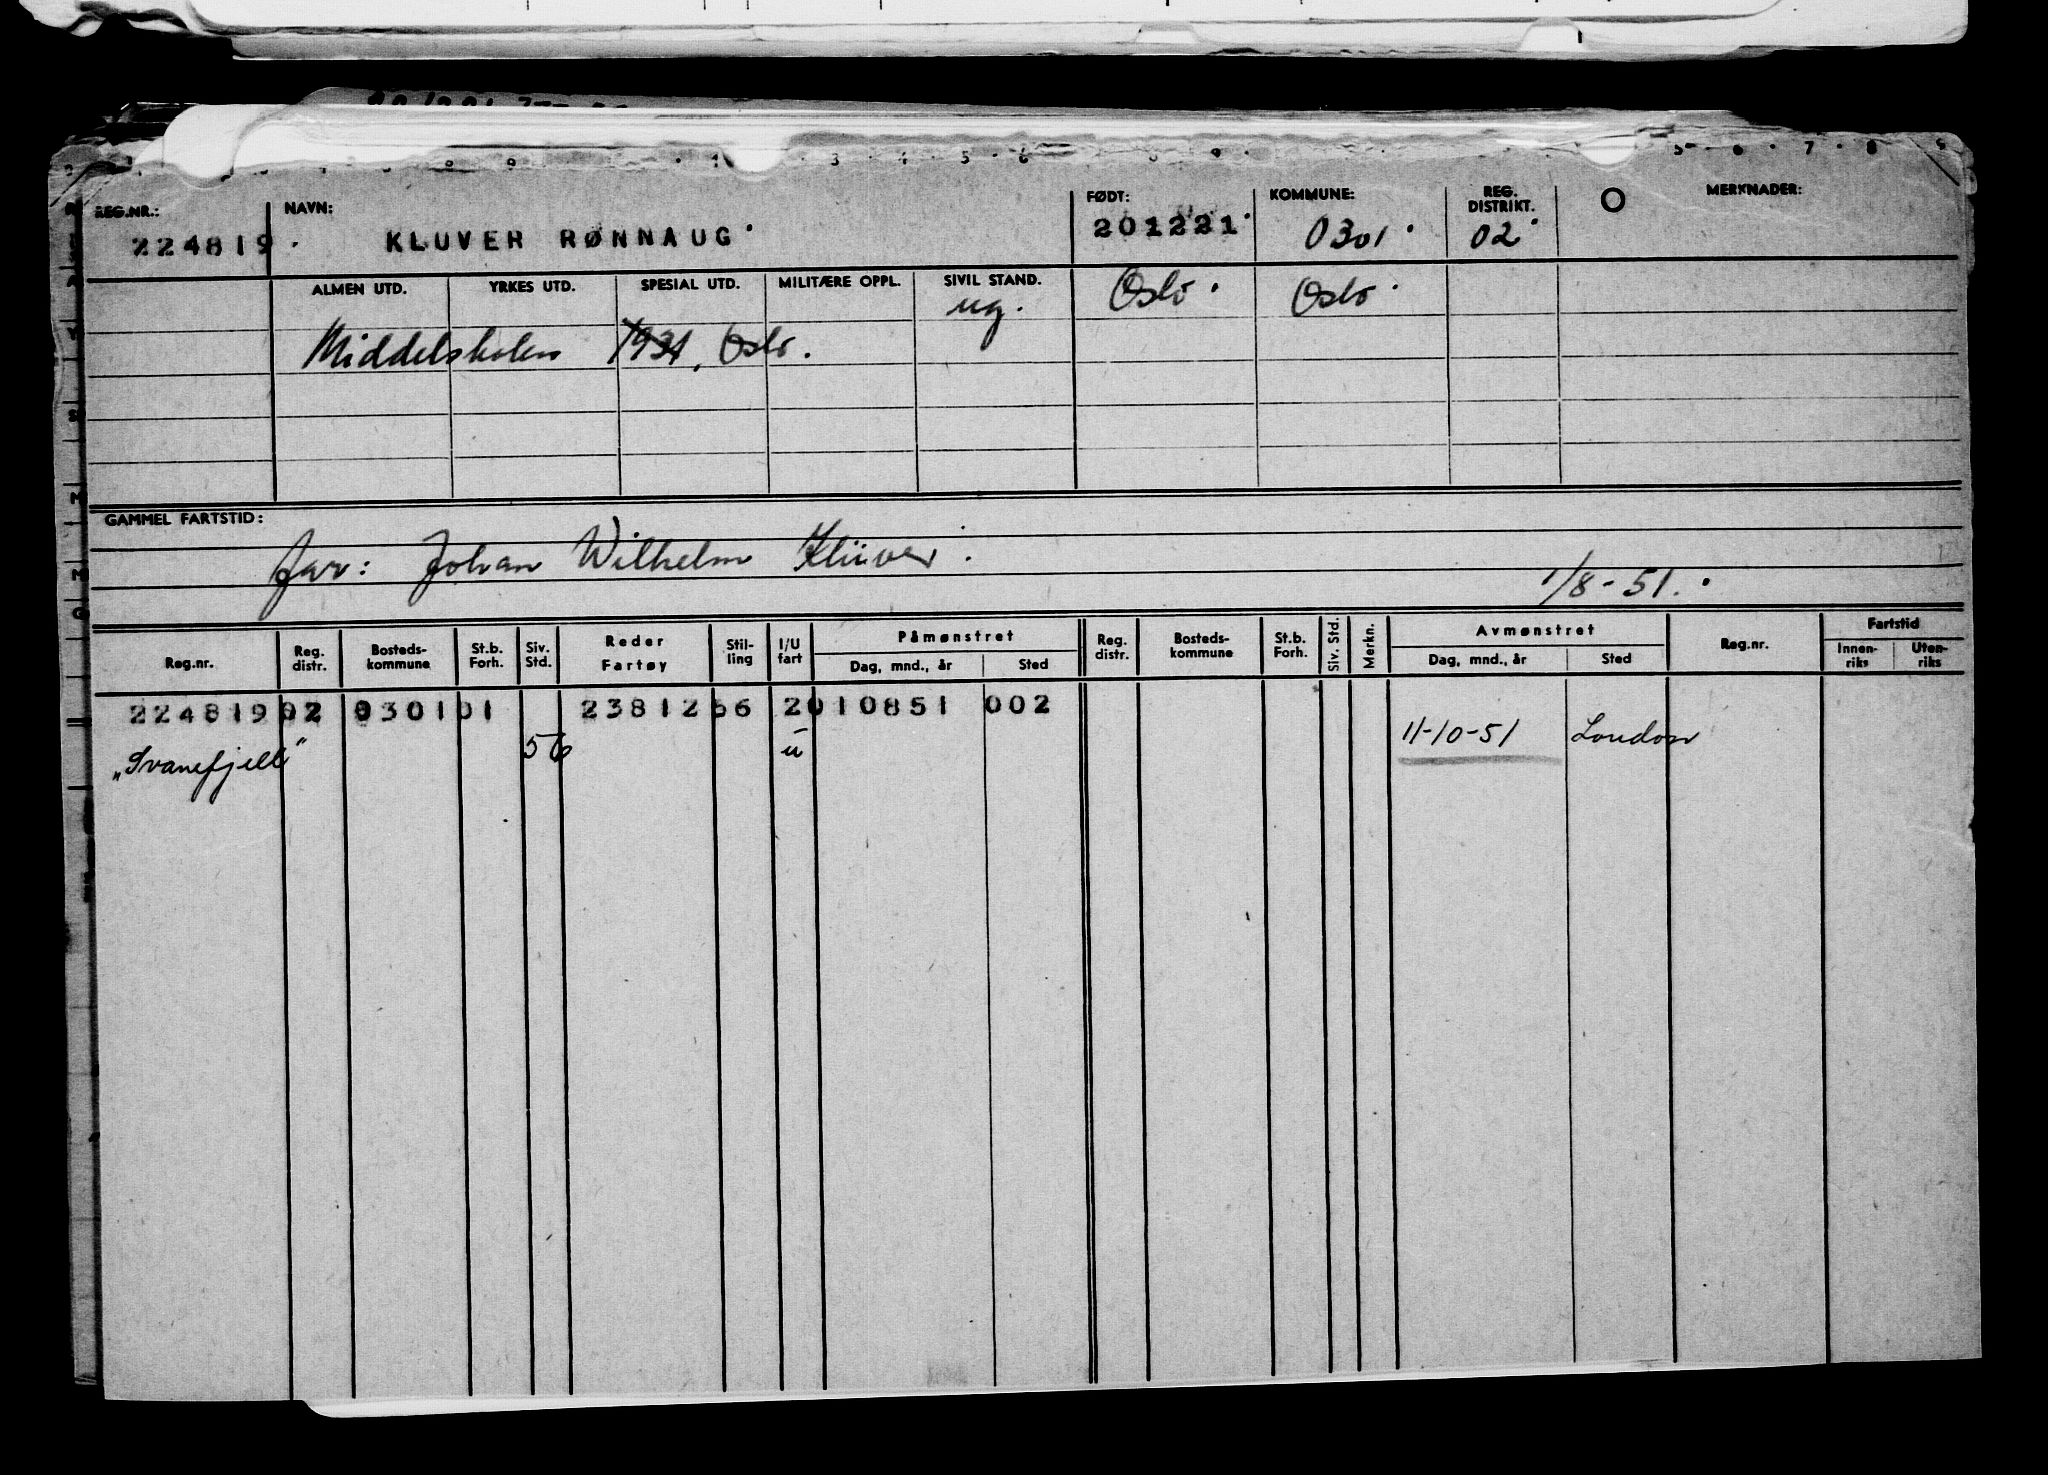 REG.NR.: NAVN: FØDT: KOMMUNE: REG. DISTRIKT. MERKNADER:
224819. KLUVER RØNNAUG. 201221. 0301. 02.
ALMEN UTD. YRKES UTD. SPESIAL UTD. MILITÆRE OPPL. SIVIL STAND.
ug. Oslo. Oslo.
Middelskolen 1931, Oslo.
GAMMEL FARTSTID:
far: Johan Wilhelm Klüver.
1/8-51.
Reg.nr. Reg. distr. Bosteds-kommune St.b. Forh. Siv. Std. Reder Fartøy Stil-ling I/U fart Påmønstret Dag, mnd., år Sted Reg. distr. Bosteds-kommune St.b. Forh. Siv. Std. Merkn. Avmønstret Dag, mnd., år Sted Reg.nr. Fartstid Innen-riks Uten-riks
224819 02 0301 01 23812 66 2 010851 002
11-10-51 London
„Svanefjell" 56 u